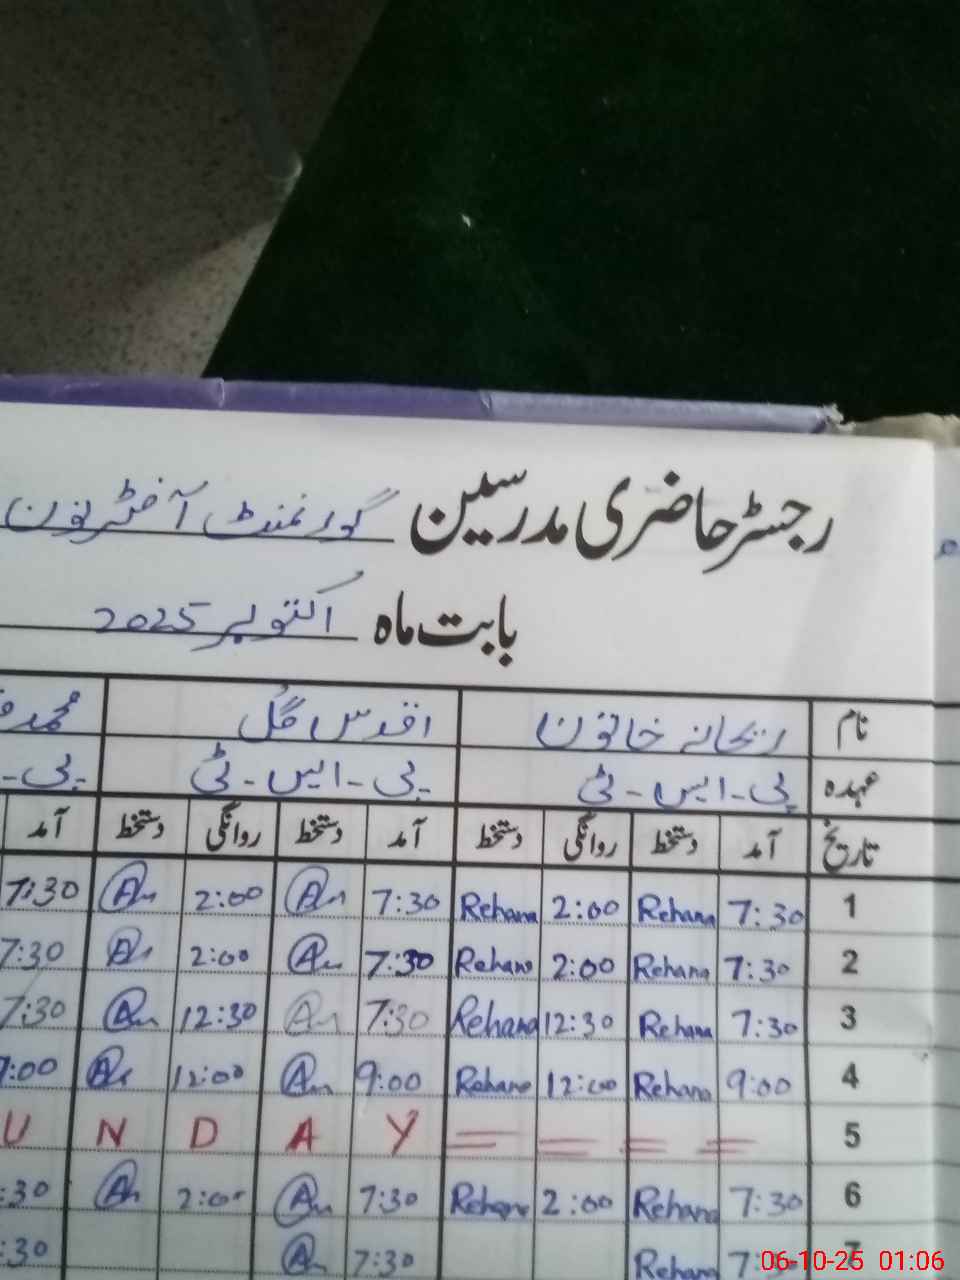 رجسٹر حاضری مدرسین گورنمنٹ آفٹرنون
بابت ماہ اکتوبر 2025
نام ریحانہ خاتون اقدس گل محمد
عہدہ پی-ایس-ٹی پی-ایس-ٹی پی-
تاریخ آمد دستخط روانگی دستخط آمد دستخط روانگی دستخط آمد
1 7:30 Rehana 2:00 Rehana 7:30 2:00 7:30
2 7:30 Rehana 2:00 Rehana 7:30 2:00 7:30
3 7:30 Rehana 12:30 Rehana 7:30 12:30 7:30
4 9:00 Rehana 12:00 Rehana 9:00 12:00 9:00
5 U N D A Y = = = =
6 7:30 Rehana 2:00 Rehana 7:30 2:00 :30
7 7:30 Rehana 7:30 :30
06-10-25 01:06